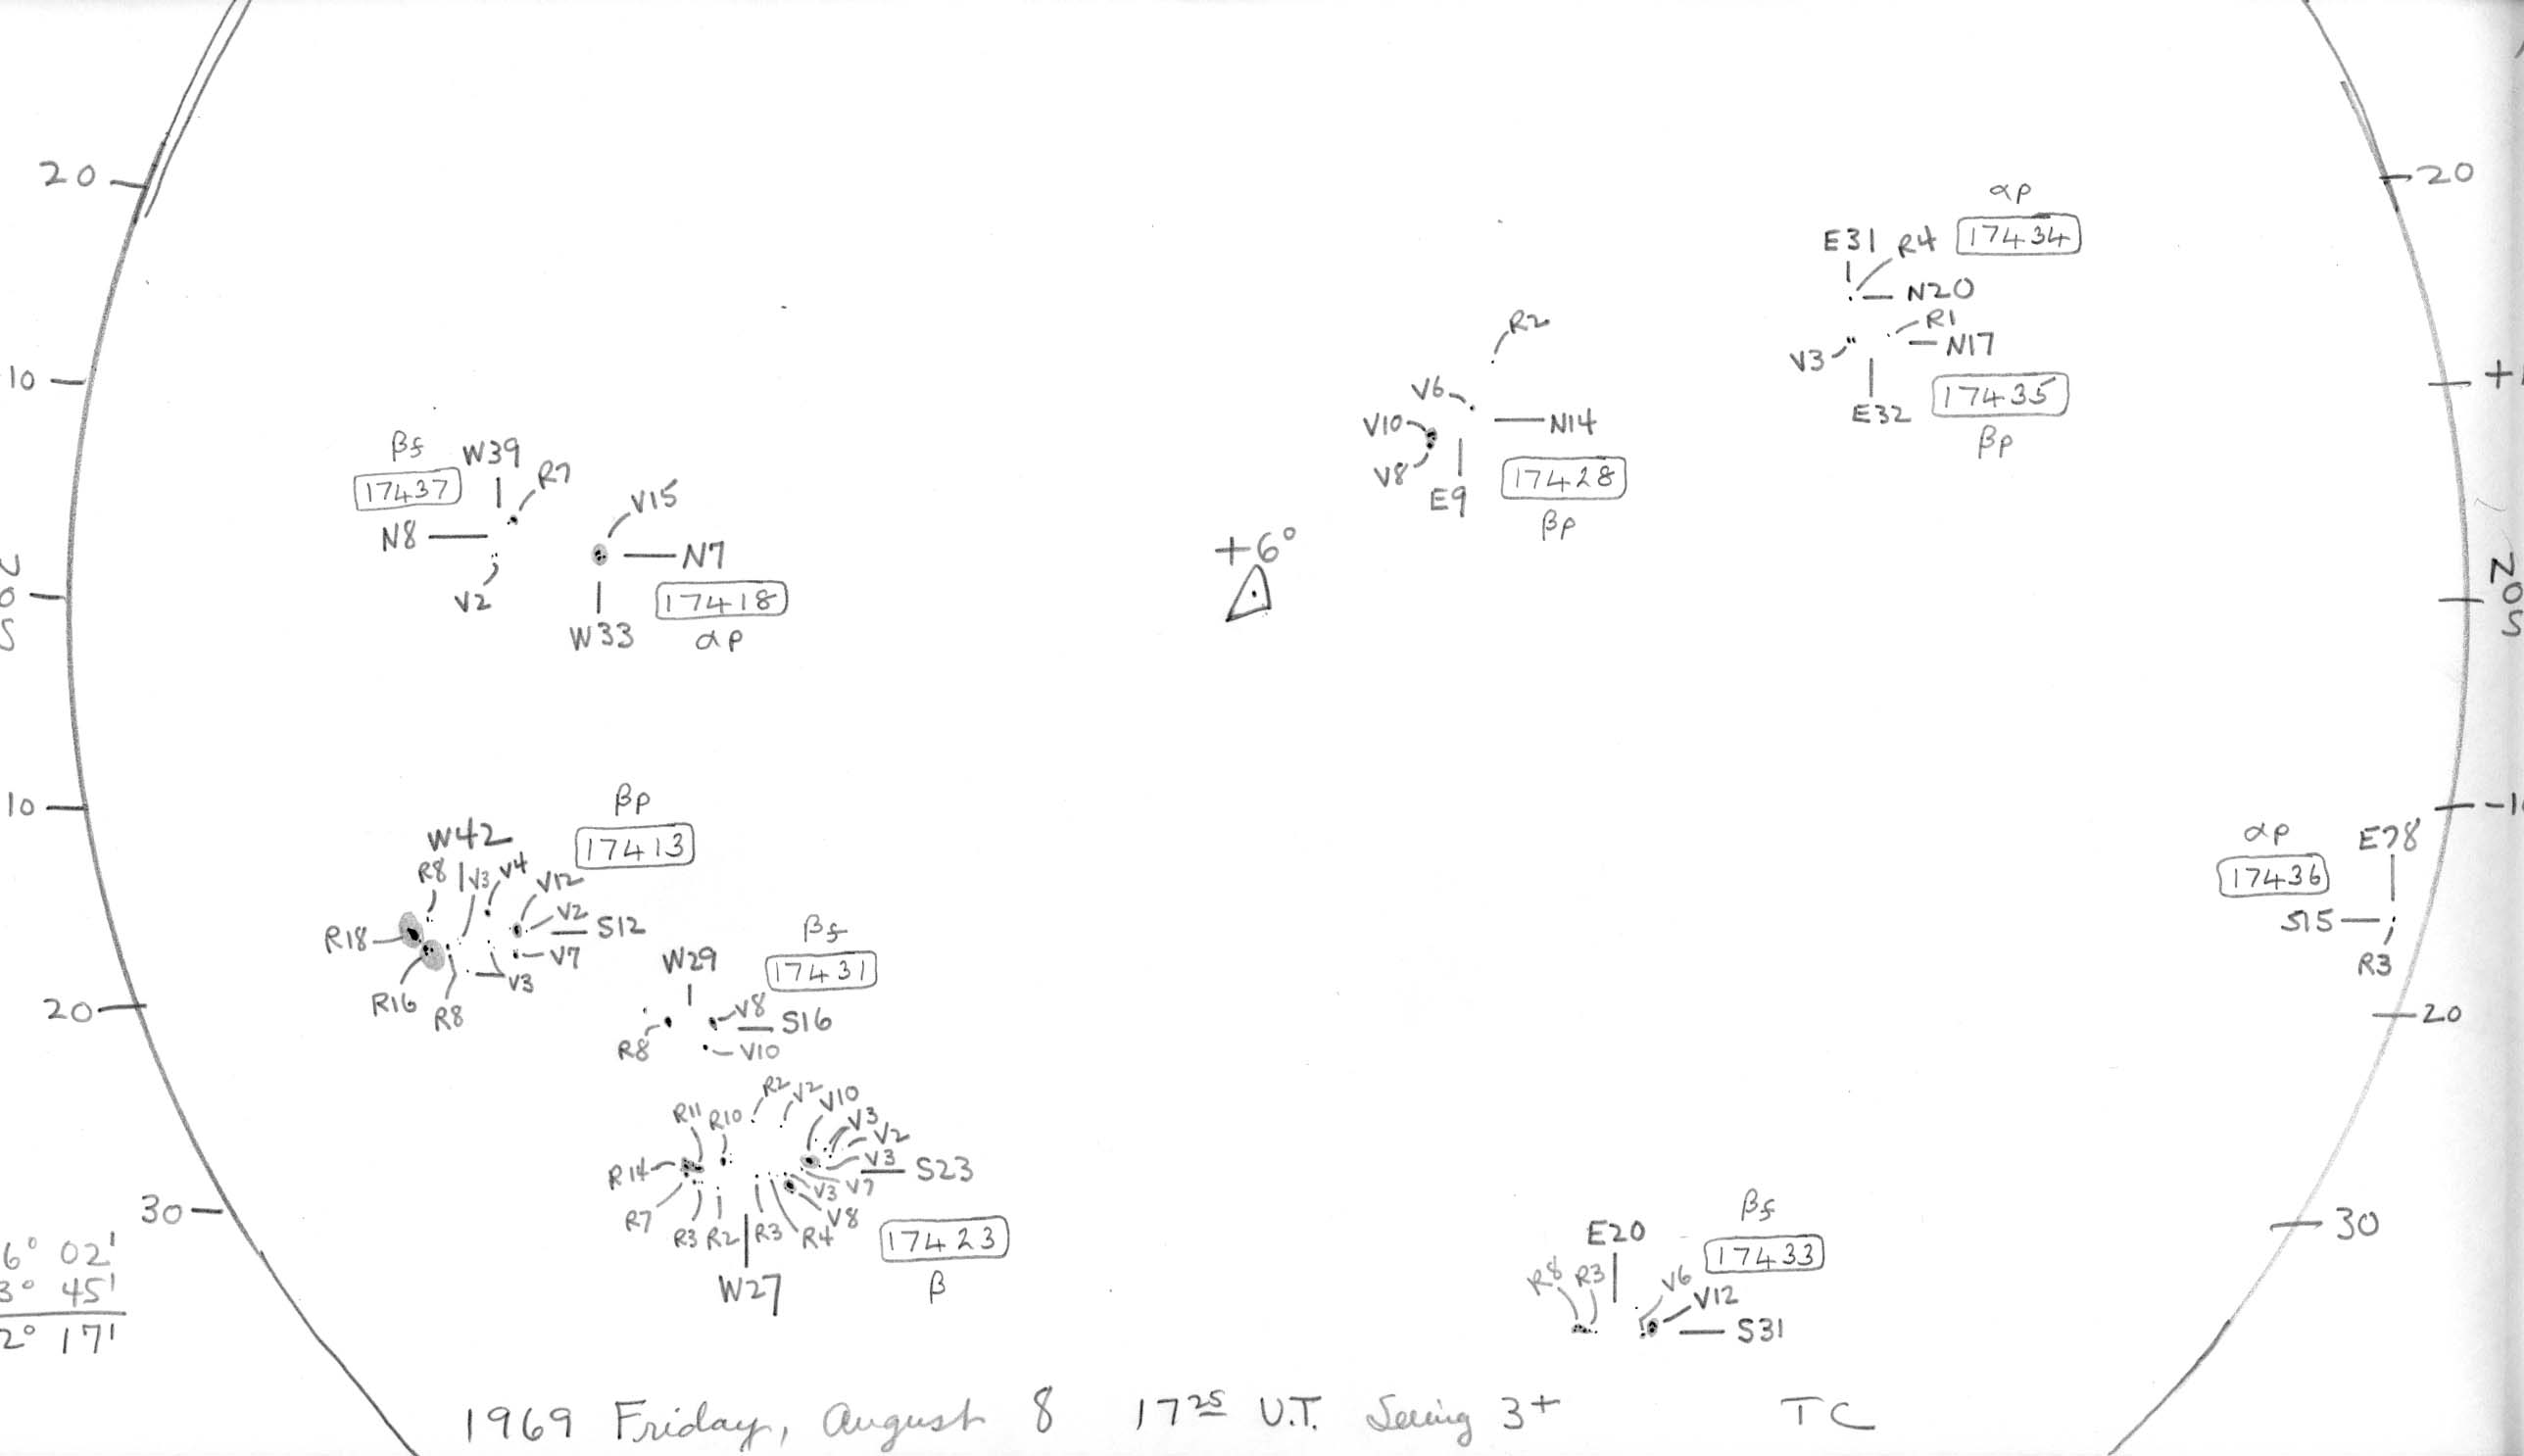 20
20
αp
E31 R4 17434
N20
R1
V3 N17
E32 17435
βp
10
R2
V6
V10 N14
V8 17428
E9
βp
βf W39 R7
17437
N8
V2
V15
N7
17418
W33 αp
+6°
0
S
N
0
S
10
10
βp
W42 17413
R8 V3 V4 V12
V2 S12
R18 V7
V3
R16 R8
βf
W29 17431
V8 S16
R8 V10
R2 V2 V10
R11 R10 V3
V2
R14 V3 S23
V3 V7
R7 V8
R3 R2 R3 R4 17423
W27 β
αp E78
17436
S15
R3
20
20
30
30
βf
E20 17433
R8 R3 V6
V12
S31
6° 02'
3° 45'
2° 17'
1969 Friday, August 8 17 25 U.T. Seeing 3+ TC